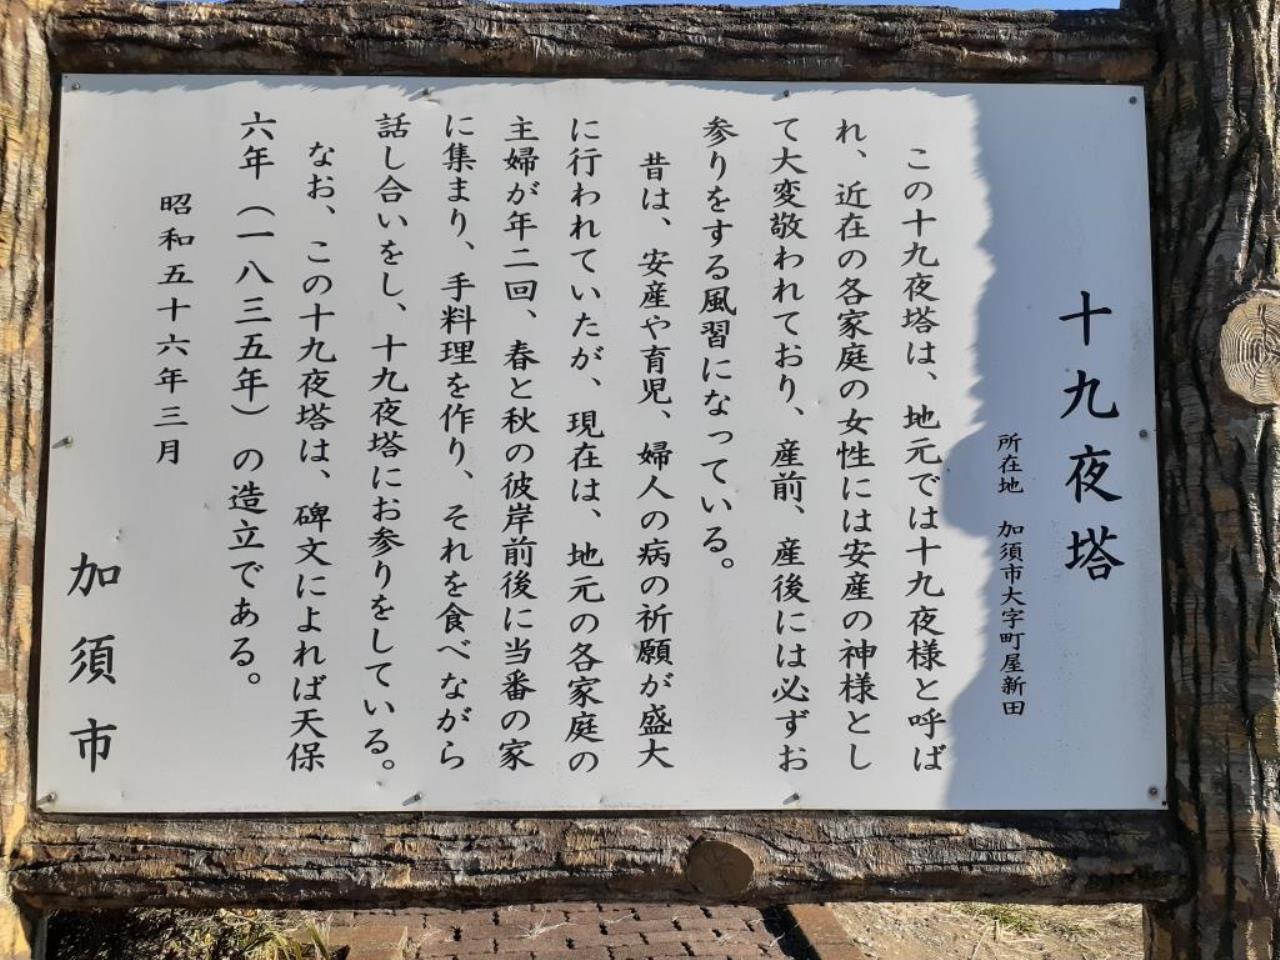 十九夜塔
所在地　加須市大字町屋新田
この十九夜塔は、地元では十九夜様と呼ば
れ、近在の各家庭の女性には安産の神様とし
て大変敬われており、産前、産後には必ずお
参りをする風習になっている。
昔は、安産や育児、婦人の病の祈願が盛大
に行われていたが、現在は、地元の各家庭の
主婦が年二回、春と秋の彼岸前後に当番の家
に集まり、手料理を作り、それを食べながら
話し合いをし、十九夜塔にお参りをしている。
なお、この十九夜塔は、碑文によれば天保
六年（一八三五年）の造立である。
昭和五十六年三月
加須市